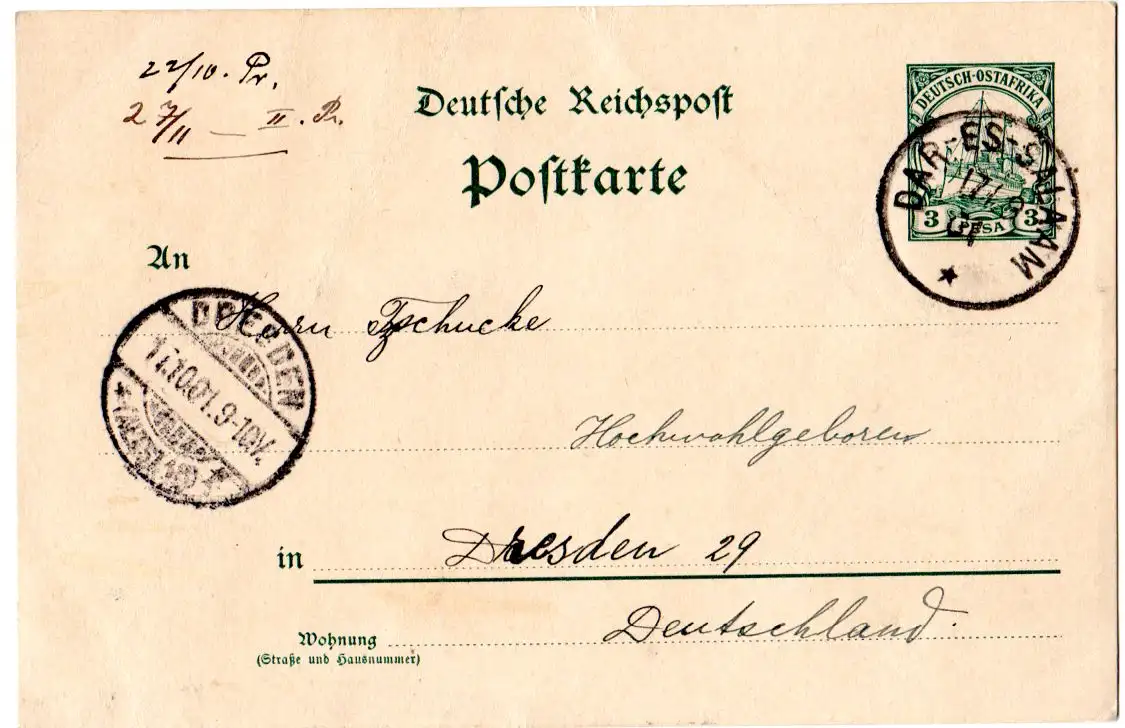 22/10. Pr.
27/11 — II. Pr.
Deutsche Reichspost
Postkarte
DEUTSCH-OSTAFRIKA
3 PESA 3
DAR-ES-SALAAM
17/9
An
Herrn Tzschucke
DRESDEN
17.10.01.9-10V.
Hochwohlgeboren
in Dresden 29
Deutschland.
Wohnung
(Straße und Hausnummer)